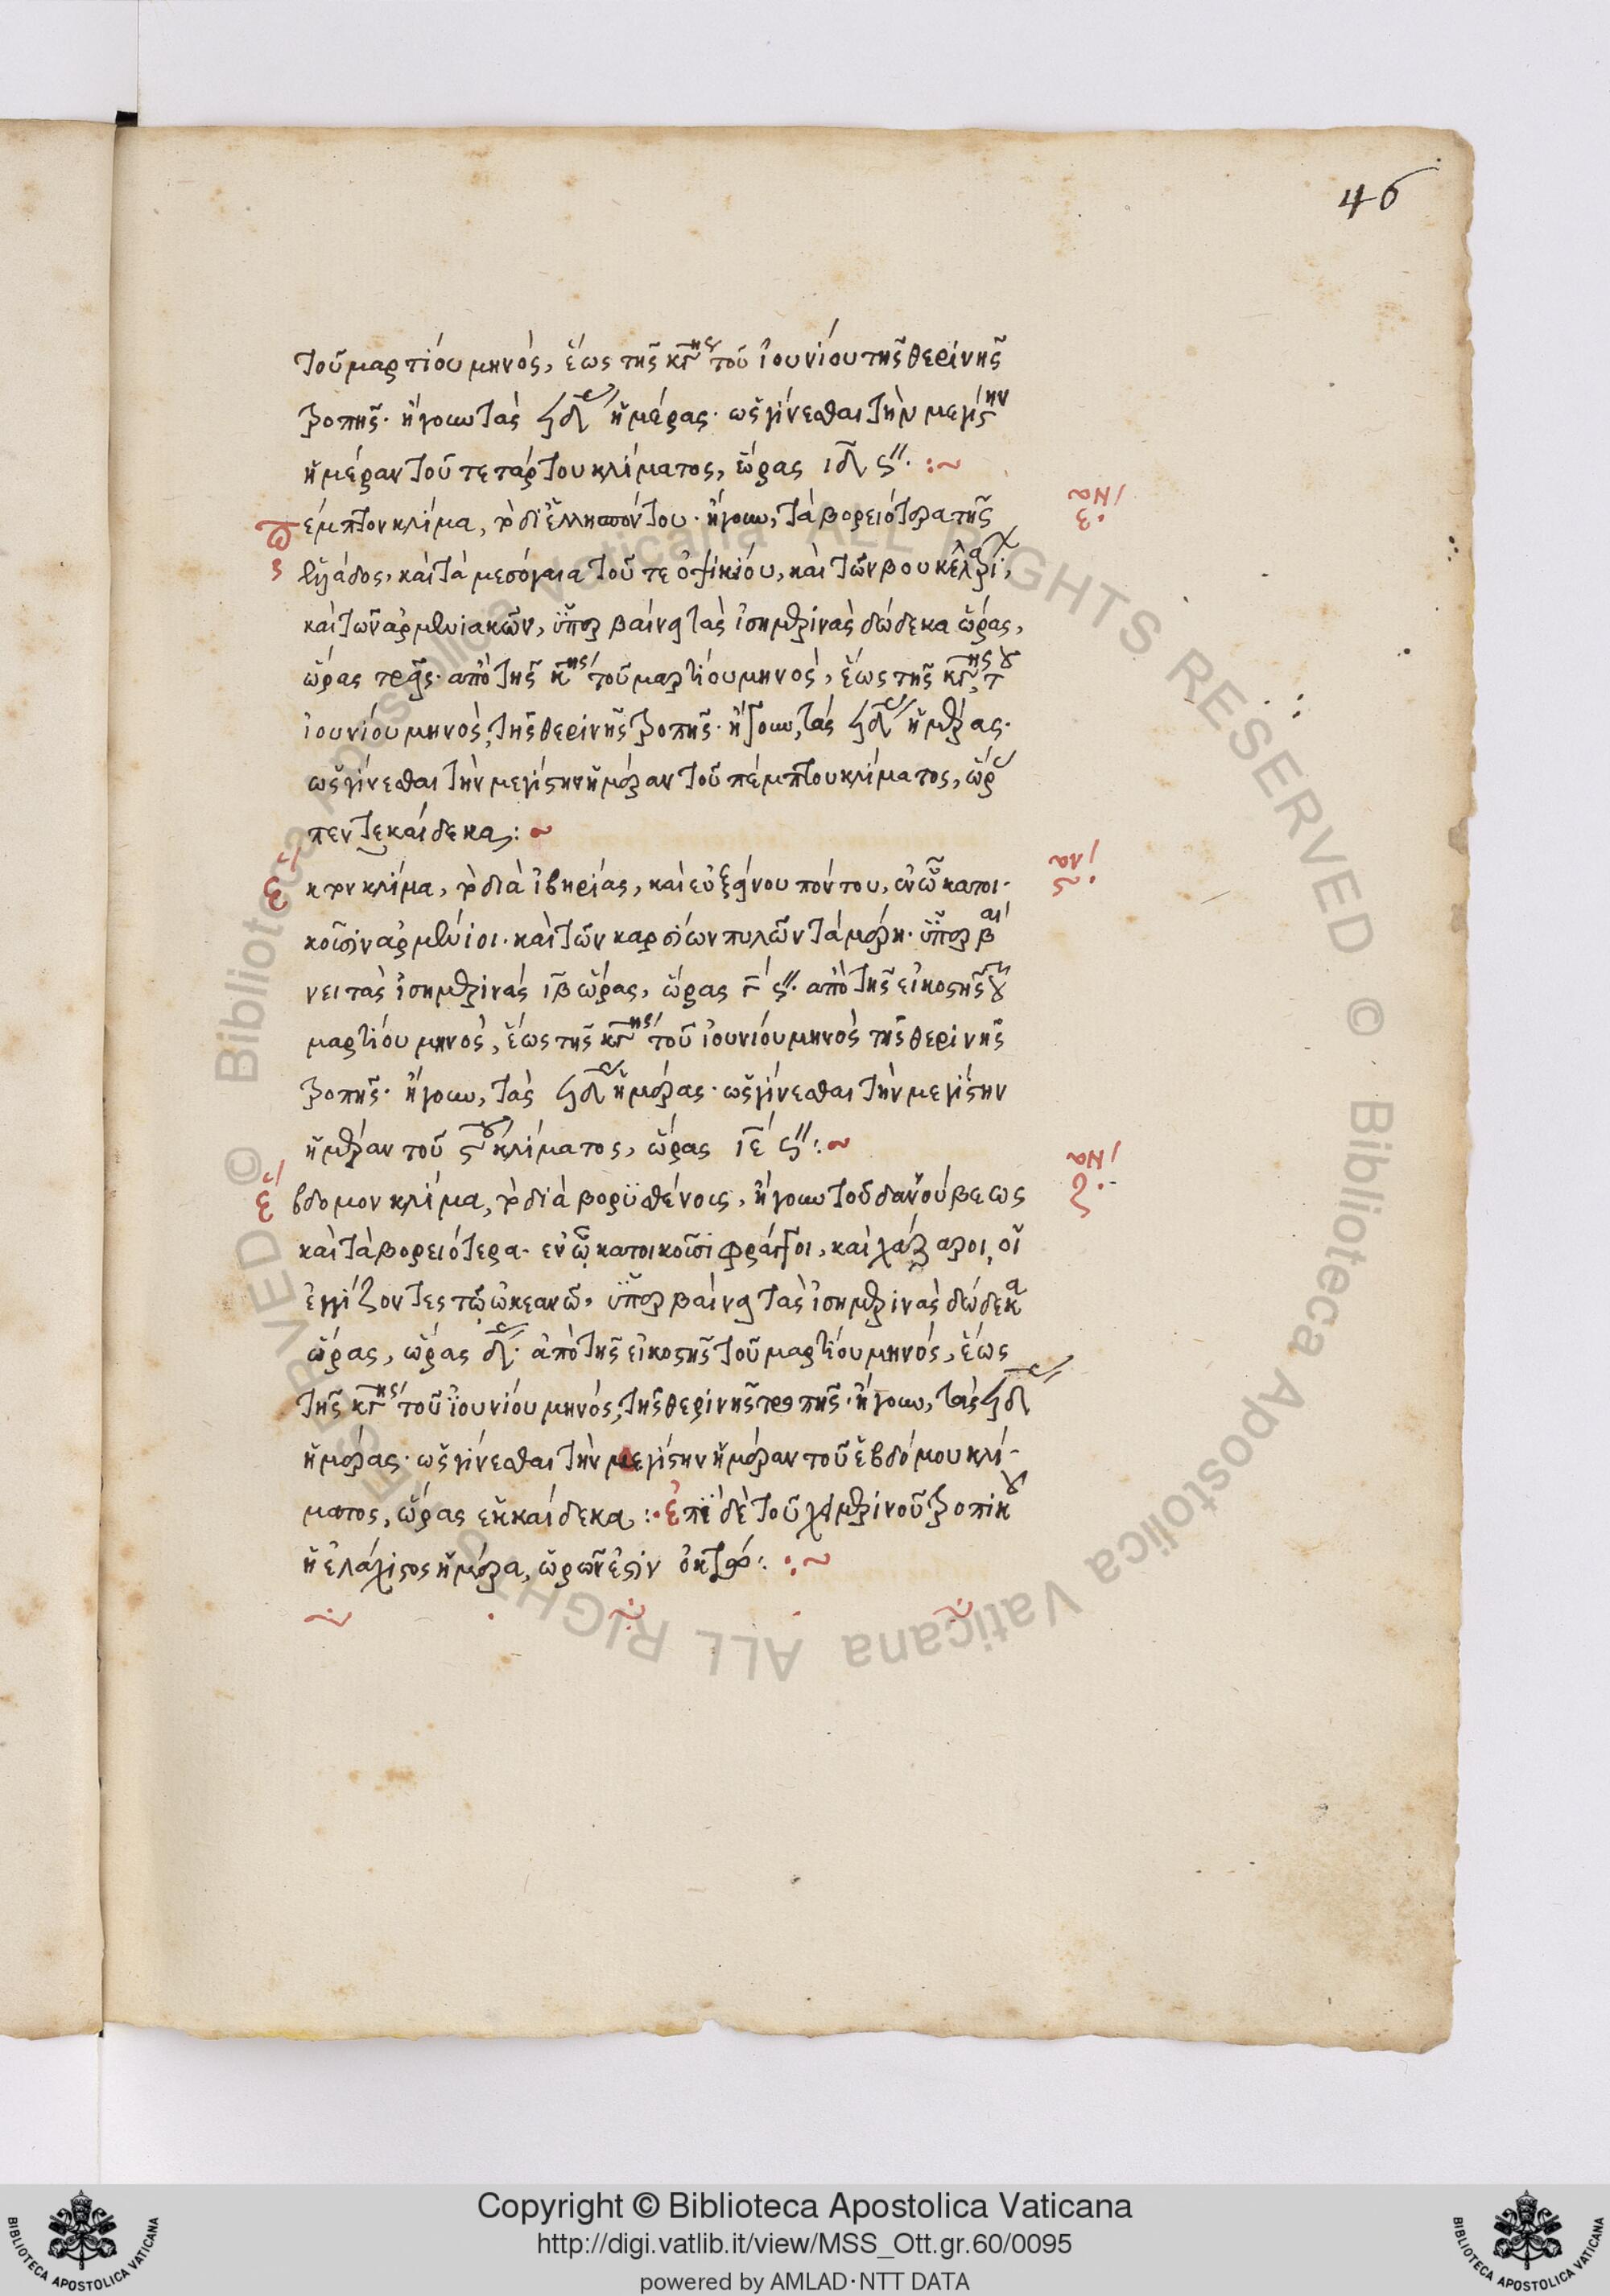 46
τοῦ μαρτίου μηνὸς, ἕως τῆς κγ̅ης τοῦ ἰουνίου τῆς θερινῆς
τροπῆς· ἤγουν τὰς ϟδ ἡμέρας· ὡς γίνεσθαι τὴν μεγίστην
ἡμέραν τοῦ τετάρτου κλίματος, ὥρας ιδ ς′′· :~
Πέμπτον κλίμα, τὸ δι' ἑλλησπόντου· ἤγουν, τὰ βορειότερα τῆς
ἑλλάδος, καὶ τὰ μεσόγαια τοῦ τε ὀψικίου, καὶ τῶν βουκελλαρί,
καὶ τῶν ἀρμενιακῶν, ὑπερβαίνει τὰς ἰσημερινὰς δώδεκα ὥρας,
ὥρας τρεῖς· ἀπὸ τῆς κ̅ης τοῦ μαρτίου μηνὸς, ἕως τῆς κγ̅ης τοῦ
ἰουνίου μηνὸς, τῆς θερινῆς τροπῆς· ἤγουν, τὰς ϟδ ἡμέρας·
ὡς γίνεσθαι τὴν μεγίστην ἡμέραν τοῦ πέμπτου κλίματος, ὥρ
πεντεκαίδεκα: ~
Ἕκτον κλίμα, τὸ διὰ ἰβηρίας, καὶ εὐξείνου πόντου, ἐν ᾧ κατοι-
κοῦσιν ἀρμένιοι· καὶ τῶν καρσίων πυλῶν τὰ μέρη· ὑπερβαί
νει τὰς ἰσημερινὰς ιβ ὥρας, ὥρας γ̅ ς′′· ἀπὸ τῆς εἰκοστῆς τοῦ
μαρτίου μηνὸς, ἕως τῆς κγ̅ης τοῦ ἰουνίου μηνὸς τῆς θερινῆς
τροπῆς· ἤγουν, τὰς ϟδ ἡμέρας· ὡς γίνεσθαι τὴν μεγίστην
ἡμέραν τοῦ ς̅ου κλίματος, ὥρας ιε̅ ς′′: ~
Ἕβδομον κλίμα, τὸ διὰ βορϋσθένους, ἤγουν τοῦ δανούβεως
καὶ τὰ βορειότερα· ἐν ᾧ κατοικοῦσι φράγγοι, καὶ χάζαροι, οἱ
ἐγγίζοντες τῷ ὠκεανῷ, ὑπερβαίνει τὰς ἰσημερινὰς δώδεκα
ὥρας, ὥρας δ̅· ἀπὸ τῆς εἰκοστῆς τοῦ μαρτίου μηνὸς, ἕως
τῆς κγ̅ης τοῦ ἰουνίου μηνὸς, τῆς θερινῆς τροπῆς· ἤγουν, τὰς ϟδ
ἡμέρας· ὡς γίνεσθαι τὴν μεγίστην ἡμέραν τοῦ ἑβδόμου κλί-
ματος, ὥρας ἑκκαίδεκα :· ἐπὶ δὲ τοῦ χειμερινοῦ τροπικοῦ
ἡ ἐλάχιστος ἡμέρα, ὡρῶν ἐστὶν ὀκτώ: :~
Copyright © Biblioteca Apostolica Vaticana
http://digi.vatlib.it/view/MSS_Ott.gr.60/0095
powered by AMLAD·NTT DATA
BIBLIOTECA APOSTOLICA VATICANA
BIBLIOTECA APOSTOLICA VATICANA
© Biblioteca Apostolica Vaticana ALL RIGHTS RESERVED © Biblioteca Apostolica Vaticana ALL RIGHTS RESERVED